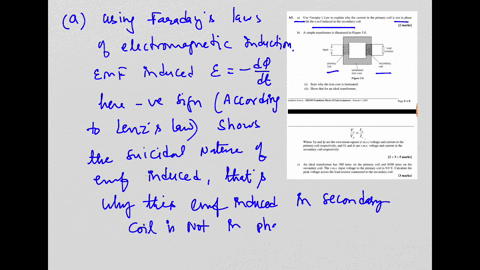 (a) Using Faraday's laws
of electromagnetic induction.
EMF induced ε = - dΦ/dt
here -ve sign (According
to Lenz's law) shows
the suicidal nature of
emf induced, that's
why this emf induced in secondary
coil is not in pha
a) Use Faraday's Law to explain why the current in the primary coil is not in phase
with the e.m.f induced in the secondary coil.
(2 marks)
b) A simple transformer is illustrated in Figure
primary
coil
secondary
coil
(i) State why the iron core is laminated.
(ii) Show that for an ideal transformer,
Where Vp and Vs are the
primary coil respectively, and
secondary coil respectively.
(2 + 3 = 5 marks)
c) An ideal transformer has
turns on the primary coil and
turns on the
secondary coil. The r.m.s. input voltage to the primary coil is
Calculate the
peak voltage across the load resistor connected to the secondary coil.
(3 marks)